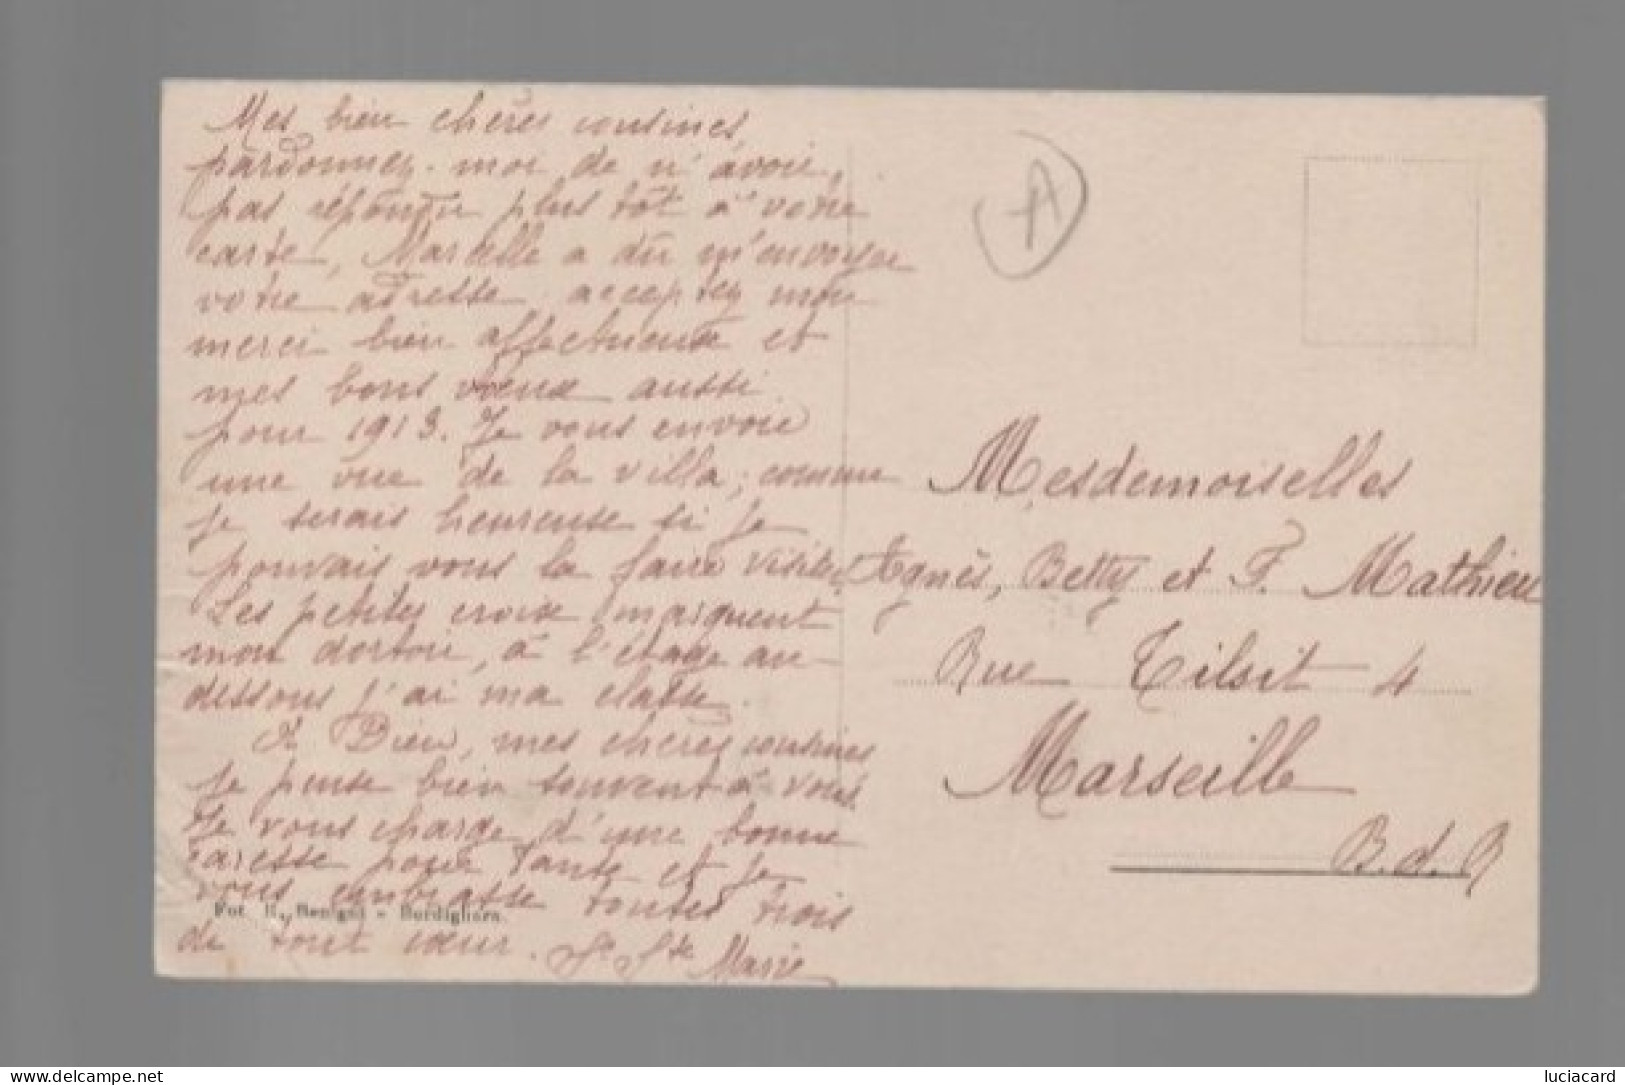 Mes bien chères cousines,
pardonnez-moi de n'avoir
pas répondu plus tôt à votre
carte, Marcelle a dû m'envoyer
votre adresse, acceptez mon
merci bien affectueux et
mes bons vœux aussi
pour 1913. Je vous envoie
une vue de la villa; comme
je serais heureuse si je
pouvais vous la faire visiter.
Les petites croix marquent
mon dortoir, à l'étage au-
dessous j'ai ma classe.
A Dieu, mes chères cousines
je pense bien souvent à vous.
Je vous charge d'une bonne
caresse pour Tante et je
vous embrasse toutes trois
Fot. Benigni - Bordighera.
de tout cœur. Sr Ste Marie
A
Mesdemoiselles
Agnès, Betty et F. Mathieu
Rue Tilsit 4
Marseille
B.d.R
delcampe.net
luciacard